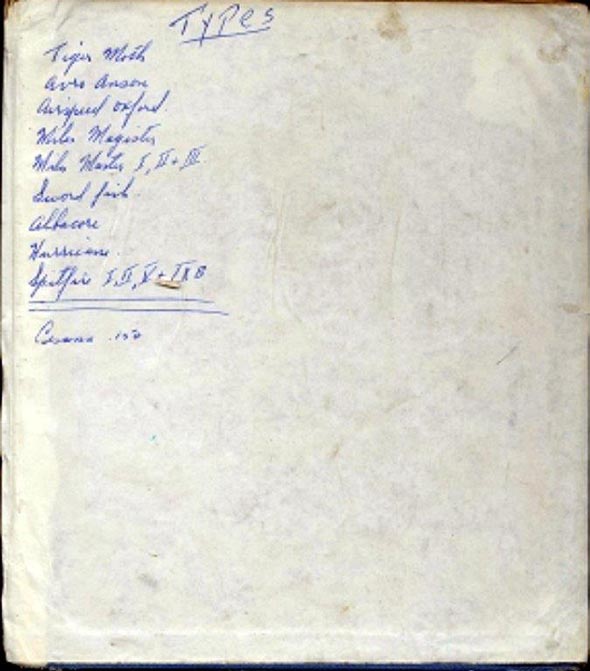 Types
Tiger Moth
Avro Anson
Airspeed Oxford.
Miles Magister
Miles Master I, II + III
Sword fish.
Albacore
Hurricane.
Spitfire I, II, V + IX B
Cessna .150